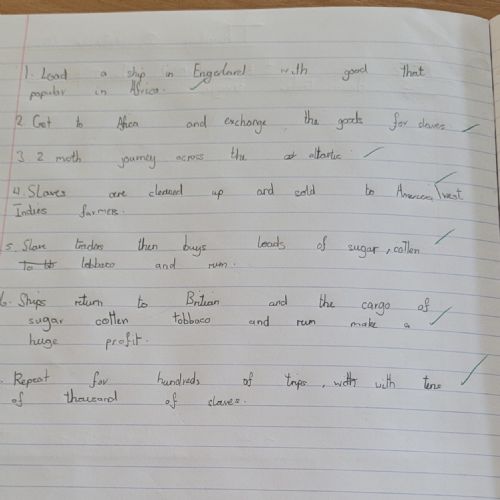 1. Load a ship in Engerland with good that
popular in Africa.
2. Get to Africa and exchange the goods for slaves.
3 2 moth journey across the altantic
4. Slaves are cleaned up and sold to Americas/west
Indies farmers.
5. Slave traders then buys loads of sugar, cotten
tobbaco and rum.
6. Ships return to Britian and the cargo of
sugar cotten tobbaco and rum make a
huge profit.
Repeat for hundreds of trips, with with tens
of thousand of slaves.